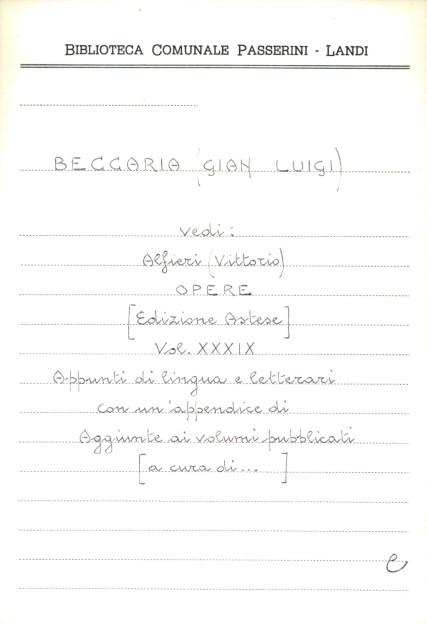 BIBLIOTECA COMUNALE PASSERINI - LANDI
BECCARIA (GIAN LUIGI)
Vedi:
Alfieri (Vittorio)
OPERE
[Edizione Astese]
Vol. XXXIX
Appunti di lingua e letterari
con un'appendice di
Aggiunte ai volumi pubblicati
[a cura di...]
e